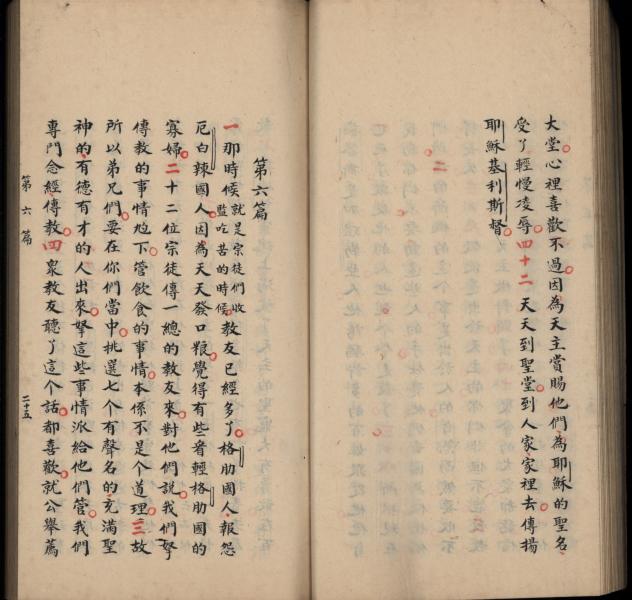 大堂心裡喜歡不過因為天主賞賜他們為耶穌的聖名
受了輕慢凌辱四十二 天天到聖堂到人家家裡去傳揚
耶穌基利斯督
第六篇
一那時候就是宗徒們收監吃苦的時候教友已經多了格肋國人報怨
厄白辣國人因為天天發口粮覺得有些看輕格肋國的
寡婦二十二位宗徒傳一總的教友來對他們說我們拏
傳教的事情下管飲食的事情本係不是個道理三故
所以弟兄們要在你們當中挑選七个有聲名的充滿聖
神的有德有才的人出來拏這些事情派給他們管我們
專門念經傳教四衆教友聽了這个話都喜歡就公舉薦
第六篇
二十五